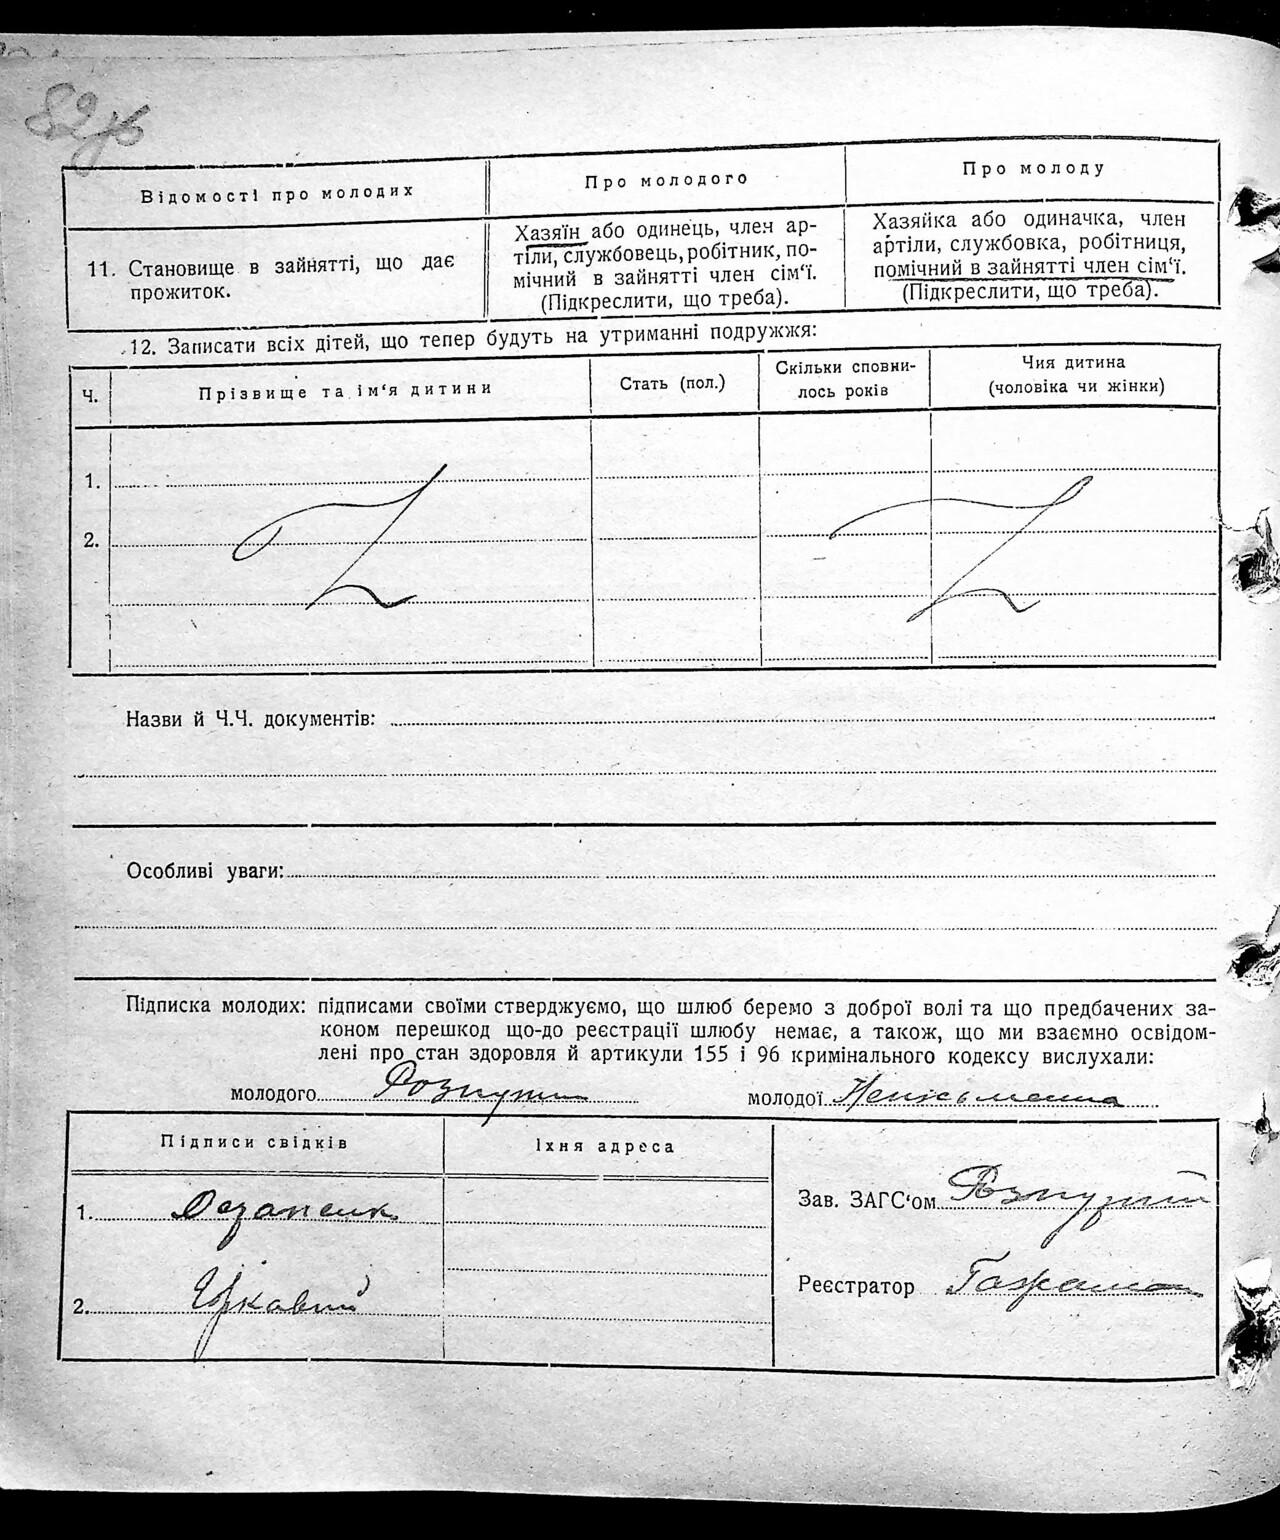 82зв
Відомості про молодих
Про молодого
Про молоду
11. Становище в зайнятті, що дає
прожиток.
Хазяїн або одинець, член ар-
тіли, службовець, робітник, по-
мічний в зайнятті член сім‘ї.
(Підкреслити, що треба).
Хазяйка або одиначка, член
артіли, службовка, робітниця,
помічний в зайнятті член сім‘ї.
(Підкреслити, що треба).
12. Записати всіх дітей, що тепер будуть на утриманні подружжя:
Ч.
Прізвище та ім‘я дитини
Стать (пол.)
Скільки сповни-
лось років
Чия дитина
(чоловіка чи жінки)
1.
2.
Назви й Ч.Ч. документів:
Особливі уваги:
Підписка молодих: підписами своїми стверджуємо, що шлюб беремо з доброї волі та що предбачених за-
коном перешкод що-до реєстрації шлюбу немає, а також, що ми взаємно освідом-
лені про стан здоровля й артикули 155 і 96 кримінального кодексу вислухали:
молодого
молодої
Підписи свідків
Їхня адреса
1.
2.
Зав. ЗАГС‘ом
Реєстратор